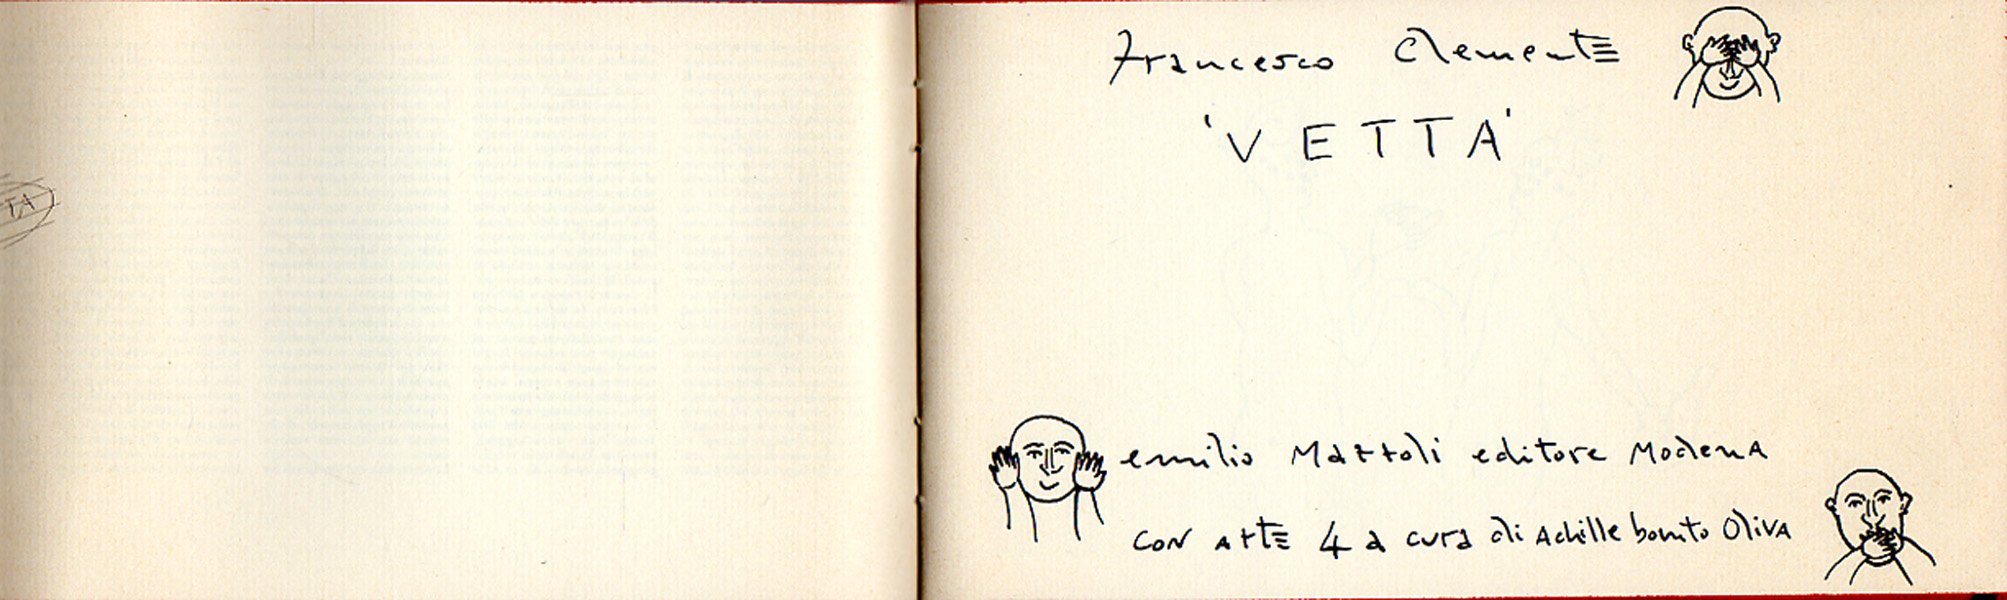 TA
Francesco Clemente
'VETTA'
emilio Mattoli editore Modena
con arte 4 a cura di Achille bonito Oliva